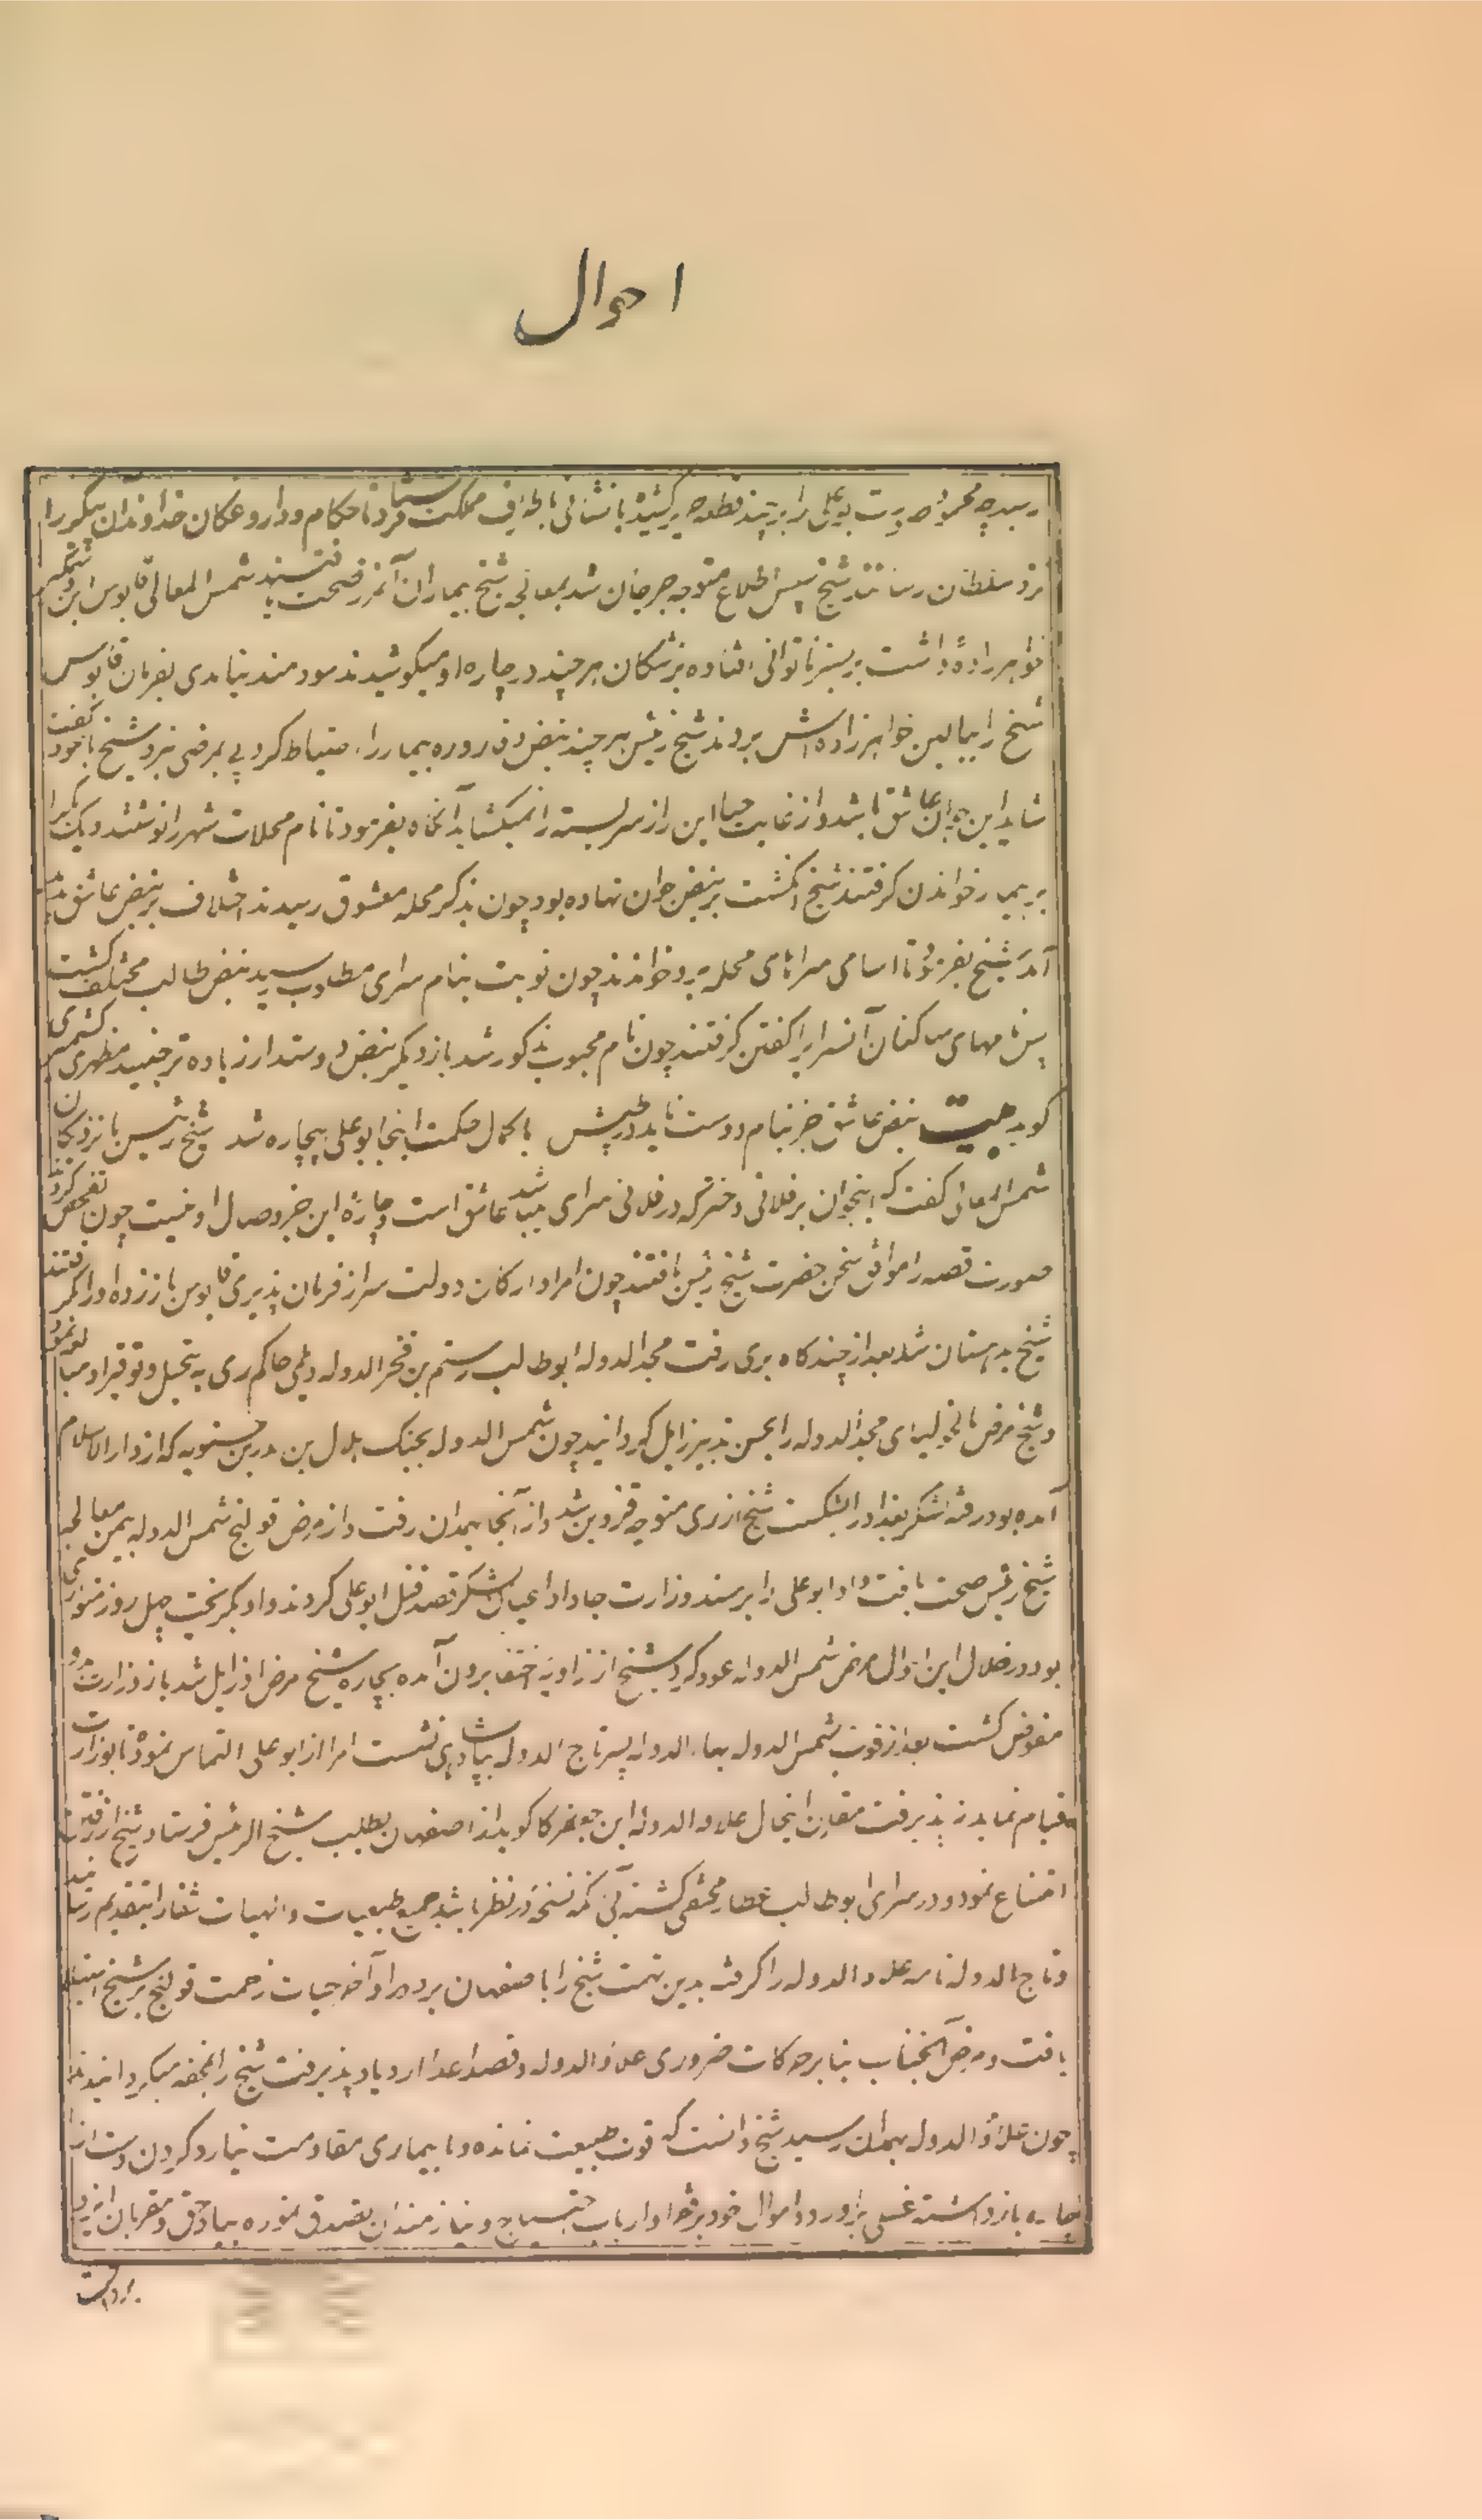 احوال
رسید چه محمود صورت بوعلی را بر چند قطعه کشیده با نشانی باطراف مملکت فرستاد تا حکام و داروغکان خداوند آن پیکر را
نزد سلطان رسانند شیخ پس اطلاع متوجه جرجان شد بمعالجه شیخ بیماران آنمرز صحت یافتند شمس المعالی قابوس ابن وشمگیر
خواهرزاده داشت بر بستر ناتوانی افتاده پزشکان هر چند در چاره او میکوشیدند سودمند نیامدی بفرمان قابوس
شیخ را ببالین خواهرزاده اش بردند شیخ رئیس هر چند نبض و قاروره بیمار را احتیاط کرد پی بمرضی نبرد شیخ با خود گفت
شاید این جوان عاشق باشد و از غایت حیا این راز سربسته را نمیکشاید آنگاه بفرمود تا نام محلات شهر را نوشتند و یک یک را
بر بیمار خواندن کرفتند شیخ انکشت بر نبض جوان نهاده بود چون بذکر محله معشوق رسیدند اختلاف بر نبض عاشق پدید
آمد شیخ بفرمود تا اسامی سراهای محله برو خواندند چون نوبت بنام سرای مطلوب رسید نبض طالب مختلف کشت
پس نامهای ساکنان آنسرا را کفتن کرفتند چون نام محبوب مذکور شد باز دیکر نبض دوستدار زیاده تر جنبید مظهری کشمیری
کوید بیت نبض عاشق جز بنام دوست ناید در طپش با کمال حکمت اینجا بوعلی بیچاره شد شیخ رئیس با نزدیکان
شمس المعالی کفت که اینجوان بر فلانی دختر که در فلانی سرای میباشد عاشق است و چاره این جز وصال او نیست چون تفحص کردند
صورت قصه را موافق سخن حضرت شیخ رئیس یافتند چون امرا و ارکان دولت سر از فرمان پذیری قابوس باز زده او را کرفتند
شیخ بدهستان شد بعد از چند کاه بری رفت مجد الدوله ابوطالب رستم بن فخر الدوله دیلمی حاکم ری به تبجیل و توقیر او مبالغه نمود
و شیخ مرض مالیخولیای مجد الدوله را بحسن تدبیر زایل کردانید چون شمس الدوله بجنک هلال بن بدر بن حسنویه که از دار السلام
آمده بود رفته لشکر بغداد را شکست شیخ از ری متوجه قزوین شد و از آنجا بهمدان رفت و از مرض قولنج شمس الدوله بیمن معالجه
شیخ رئیس صحت یافت و او ابوعلی را بر مسند وزارت جا داد اعیان لشکر قصد قتل ابوعلی کردند و او بکریخت چهل روز متواری
بود در خلال این احوال مرض شمس الدوله عود کرد شیخ از زاویه اختفا برون آمده بچاره شیخ مرض او زایل شد باز وزارت بدو
مفوض کشت بعد از فوت شمس الدوله بهاء الدوله پسر تاج الدوله بپادشاهی نشست امرا از ابوعلی التماس نمودند تا بوزارت
قیام نماید نپذیرفت مقارن اینحال علاء الدوله ابن جعفر کاکویه از اصفهان بطلب شیخ الرئیس فرستاد شیخ از رفتن
امتناع نمود و در سرای ابوطالب عطار مختفی کشته بی آنکه نسخه در نظر باشد جمیع طبیعیات و الهیات شفا را بتقدیم رسانید
و تاج الدوله نامه علاء الدوله را کرفته بدین تهمت شیخ را باصفهان برد و در آخر حیات زحمت قولنج بر شیخ استیلا
یافت و مرض آنجناب بنا بر حرکات ضروری علاء الدوله و قصد اعدا ازدیاد پذیرفت شیخ را بمحفه میکردانیدند
چون علاء الدوله بهمدان رسید شیخ دانست که قوت طبیعت نمانده و با بیماری مقاومت نیارد کردن دست از
چاره باز داشته غسلی برآورد و اموال خود بر فقرا و ارباب احتیاج و نیازمندان تصدق نموده بیاد حق و مقربان ایزدی
پرداخت